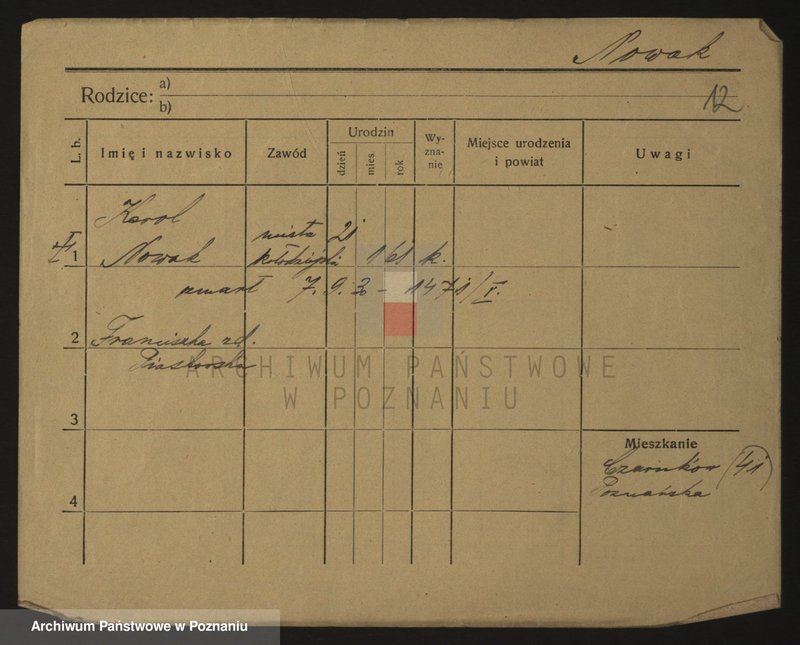 Nowak
Rodzice: a)
b)
12
L. b.
Imię i nazwisko
Zawód
Urodzin
dzień
mies
rok
Wy-
zna-
nie
Miejsce urodzenia
i powiat
Uwagi
Karol
1 Nowak
k.
zmarł 7. 9. 1471/I.
2 Franciszka zd.
Piaskowska
3
4
Mieszkanie
Czarnków (41)
Poznańska
ARCHIWUM PAŃSTWOWE
W POZNANIU
Archiwum Państwowe w Poznaniu